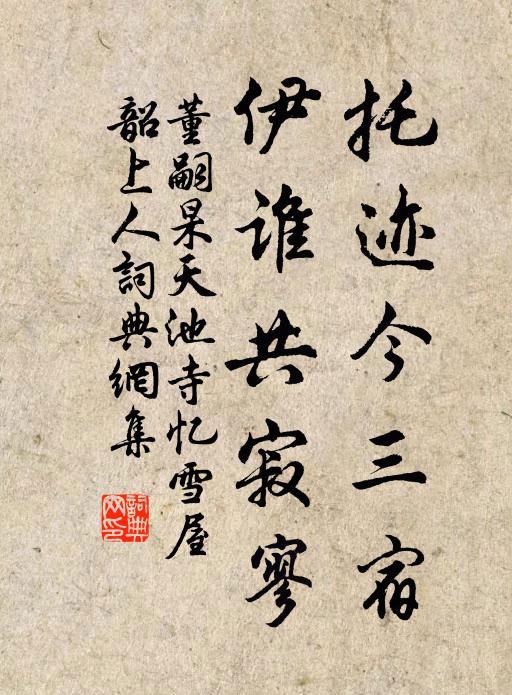 托迹今三宿
伊谁共寂寥
董嗣杲天池寺忆雪屋
韶上人詞典網集
詞典网印